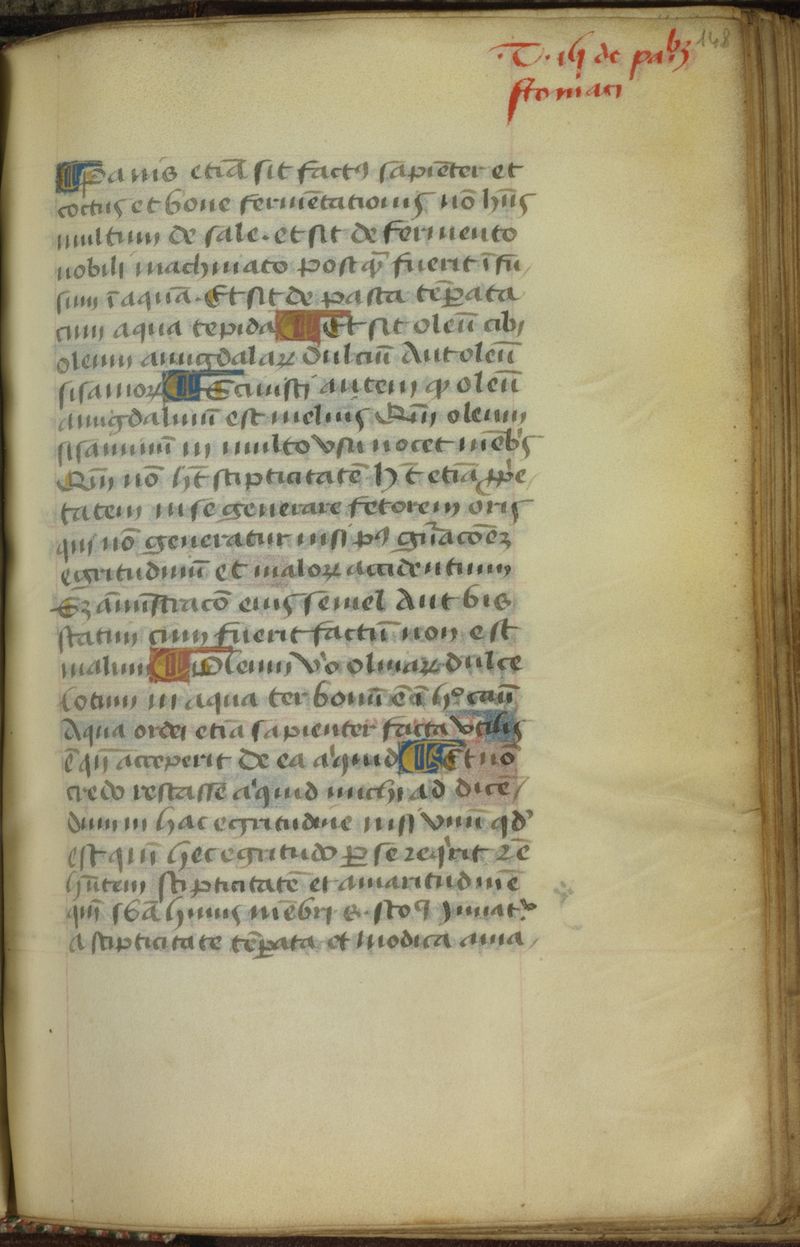 148
·T· iij de pa.bꝫ
stomaci
¶ Panis etiā sit factꝰ sapiēter et
coctus et bone fermētationis nō hñs
multum de sale. et sit de fermento
nobili machinato postqͣ fuerit īfu/
sum ī aqua. Et sit de pasta tēꝑata
cum aqua tepida ¶ Et sit oleū cibi
oleum amigdalaꝝ dulciū Aut oleū
sisamoꝝ ¶ Scivisti autem qꝫ oleū
amigdalinū est melius Qm̄ oleum
sisaminū in multo vsu nocet mēbrˢ
Qm̄ nō hꝫ stipticitatē hꝫ etiā ꝓprie/
tatem in se generare fetorem oris
qui nō generatur nisi pꝰ gn̄acoēꝫ
egritudinū et maloꝝ accidentium
Sꝫ amīstracō eius semel Aut bis
statim cum fuerit factū non est
malum ¶ Oleum vͦo oliuaꝝ dulce
lotum in aqua ter bonū ē ī hͦ cau
Aqua ordei etiā sapienter facta vtilis
ē qn̄ acceperit de ea aͥquid ¶ Et nō
credo restasse aͥquid michi ad dicē/
dum in hac egritudine nisi vnū qd'
est qm̄ hec egritudo ꝑ se reqͥrit rē
hn̄tem stipticitatē et amaritudinē
qm̄ sbā huius mēbri .s. stoꝰ iuuatᷣ
A stipticitate tēꝑata et modica ama/